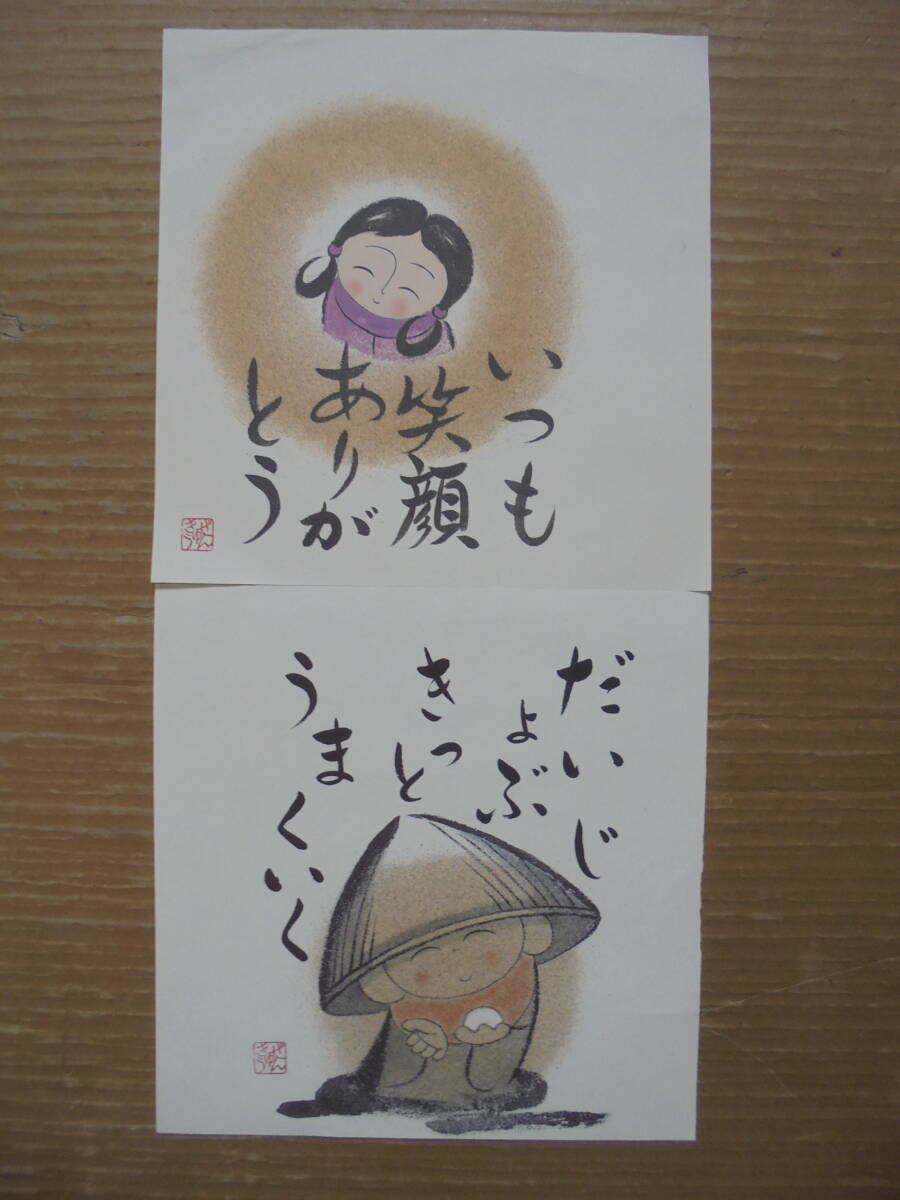 いつも
笑顔
ありが
とう
だいじ
ょぶ
きっと
うまくいく